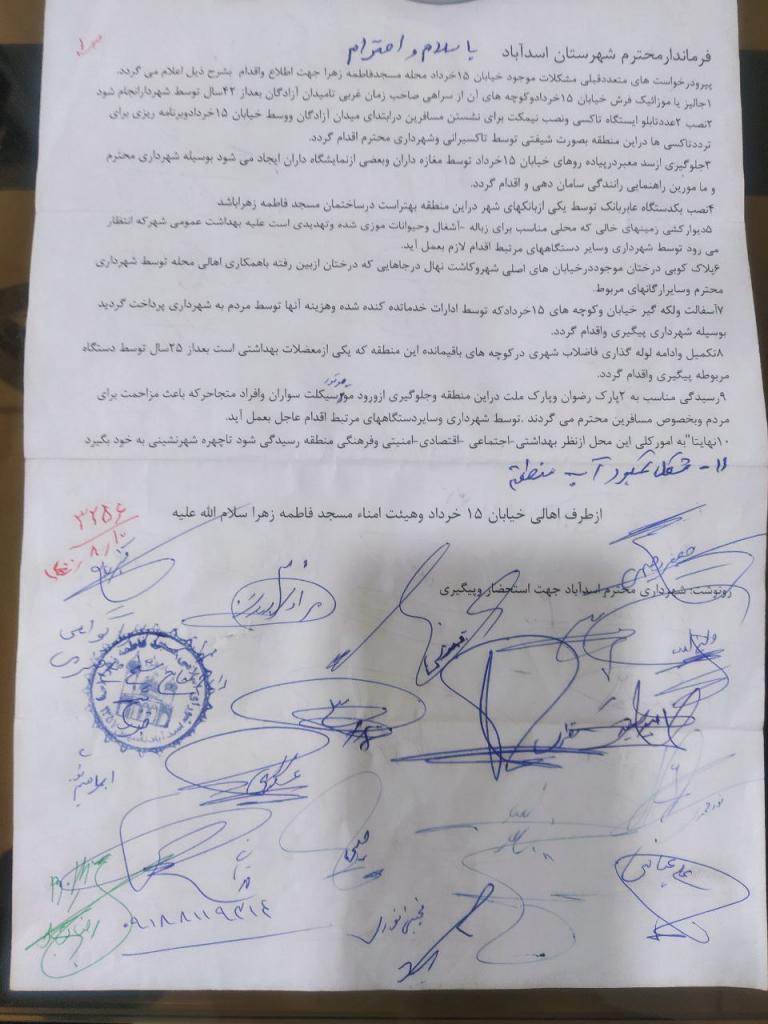 صفحه ۱
فرماندارمحترم شهرستان اسدآباد با سلام و احترام
پیرودرخواست های متعددقبلی مشکلات موجود خیابان ۱۵خرداد محله مسجدفاطمه زهرا جهت اطلاع واقدام بشرح ذیل اعلام می گردد.
۱جالیز یا موزائیک فرش خیابان ۱۵خردادوکوچه های آن از سراهی صاحب زمان غربی تامیدان آزادگان بعداز ۴۲سال توسط شهردارانجام شود
۲نصب ۲عددتابلو ایستگاه تاکسی ونصب نیمکت برای نشستن مسافرین درابتدای میدان آزادگان ووسط خیابان ۱۵خردادوبرنامه ریزی برای
ترددتاکسی ها دراین منطقه بصورت شیفتی توسط تاکسیرانی وشهرداری محترم اقدام گردد.
۳جلوگیری ازسد معبردرپیاده روهای خیابان ۱۵خرداد توسط مغازه داران وبعضی ازنمایشگاه داران ایجاد می شود بوسیله شهرداری محترم
و ما مورین راهنمایی رانندگی سامان دهی و اقدام گردد.
۴نصب یکدستگاه عابربانک توسط یکی ازبانکهای شهر دراین منطقه بهتراست درساختمان مسجد فاطمه زهراباشد
۵دیوارکشی زمینهای خالی که محلی مناسب برای زباله -آشغال وحیوانات موزی شده وتهدیدی است علیه بهداشت عمومی شهرکه انتظار
می رود توسط شهرداری وسایر دستگاههای مرتبط اقدام لازم بعمل آید.
۶پلاک کوبی درختان موجوددرخیابان های اصلی شهروکاشت نهال درجاهایی که درختان ازبین رفته باهمکاری اهالی محله توسط شهرداری
محترم وسایرارگانهای مربوط.
۷آسفالت ولکه گیر خیابان وکوچه های ۱۵خردادکه توسط ادارات خدماتده کنده شده وهزینه آنها توسط مردم به شهرداری پرداخت گردید
بوسیله شهرداری پیگیری واقدام گردد.
۸تکمیل وادامه لوله گذاری فاضلاب شهری درکوچه های باقیمانده این منطقه که یکی ازمعضلات بهداشتی است بعداز ۲۵سال توسط دستگاه
مربوطه پیگیری واقدام گردد.
۹رسیدگی مناسب به ۲پارک رضوان وپارک ملت دراین منطقه وجلوگیری ازورود موتورسیکلت سواران وافراد متجاحرکه باعث مزاحمت برای
مردم وبخصوص مسافرین محترم می گردند .توسط شهرداری وسایردستگاههای مرتبط اقدام عاجل بعمل آید.
۱۰نهایتا"به امورکلی این محل ازنظر بهداشتی-اجتماعی -اقتصادی-امنیتی وفرهنگی منطقه رسیدگی شود تاچهره شهرنشینی به خود بگیرد
۱۱- مشکل کمبود آب منطقه
ازطرف اهالی خیابان ۱۵ خرداد وهیئت امناء مسجد فاطمه زهرا سلام الله علیه
۳۲۵۶
۸/۱۰
رونوشت: شهرداری محترم اسدآباد جهت استحضار وپیگیری
علی عباسی
مجتبی نوری
۰۹۱۸۸۱۱۹۳۱۴